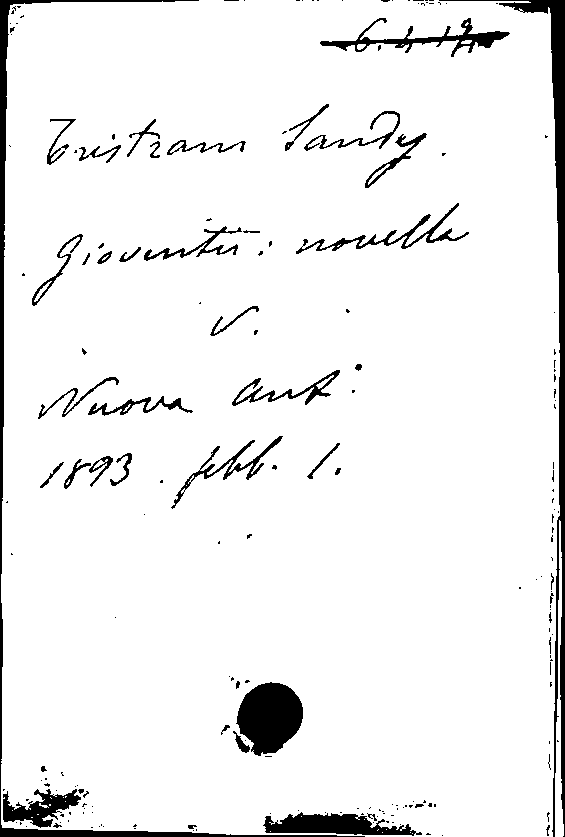 Tristram Sandy.
Gioventù: novella
v.
Nuova Ant:
1893. febb. 1.